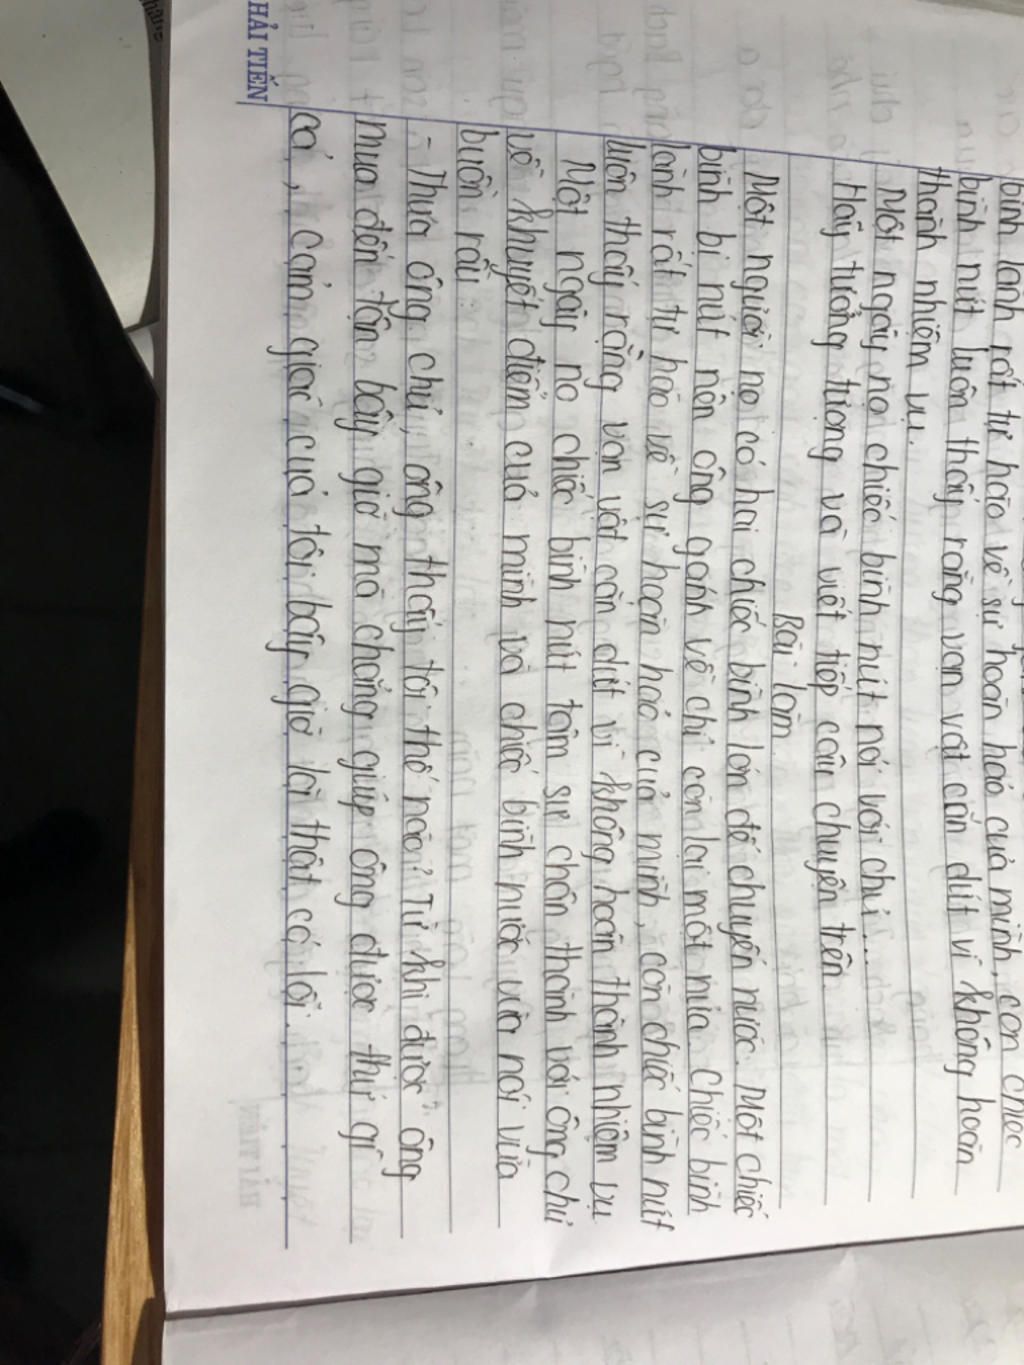 bình lành rất tự hào về sự hoàn hảo của mình, còn chiếc
bình nứt luôn thấy rằng vạn vật cắn dứt vì không hoàn
thành nhiệm vụ.
Một ngày nọ chiếc bình nứt nói với chủ...
Hãy tưởng tượng và viết tiếp câu chuyện trên.
Bài làm
Một người nọ có hai chiếc bình lớn để chuyển nước. Một chiếc
bình bị nứt nên ông gánh về chỉ còn lại một nửa. Chiếc bình
lành rất tự hào về sự hoàn hảo của mình, còn chiếc bình nứt
luôn thấy rằng vạn vật cắn dứt vì không hoàn thành nhiệm vụ
Một ngày nọ chiếc bình nứt tâm sự chân thành với ông chủ
về khuyết điểm của mình và chiếc bình nước vừa nói vừa
buồn rầu:
- Thưa ông chủ, ông thấy tôi thế nào? Từ khi được ông
mua đến tận bây giờ mà chẳng giúp ông được thứ gì
cả, cảm giác của tôi bây giờ là thật có lỗi.
HẢI TIẾN